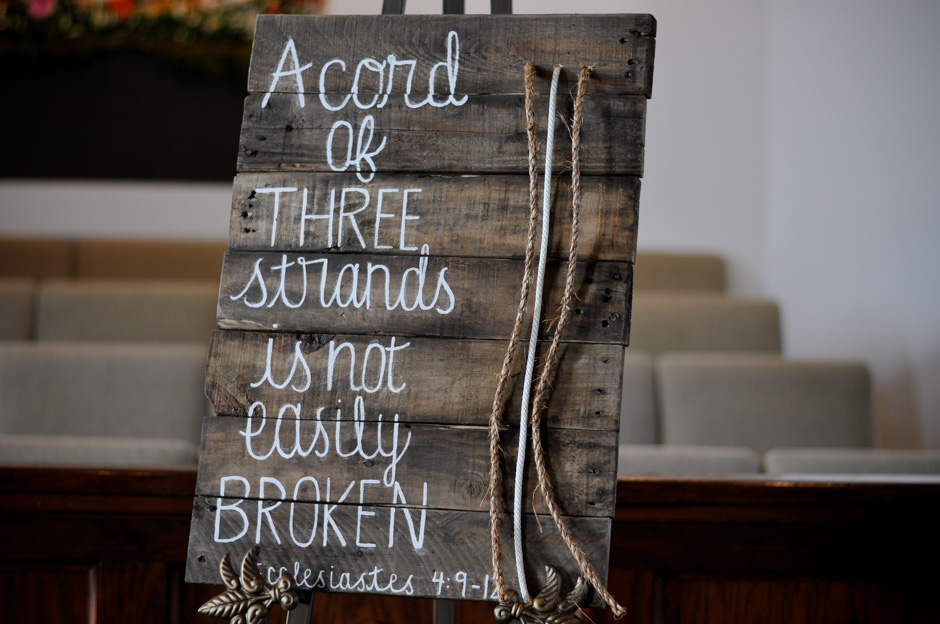 A cord
of
THREE
strands
is not
easily
BROKEN
Ecclesiastes 4:9-12